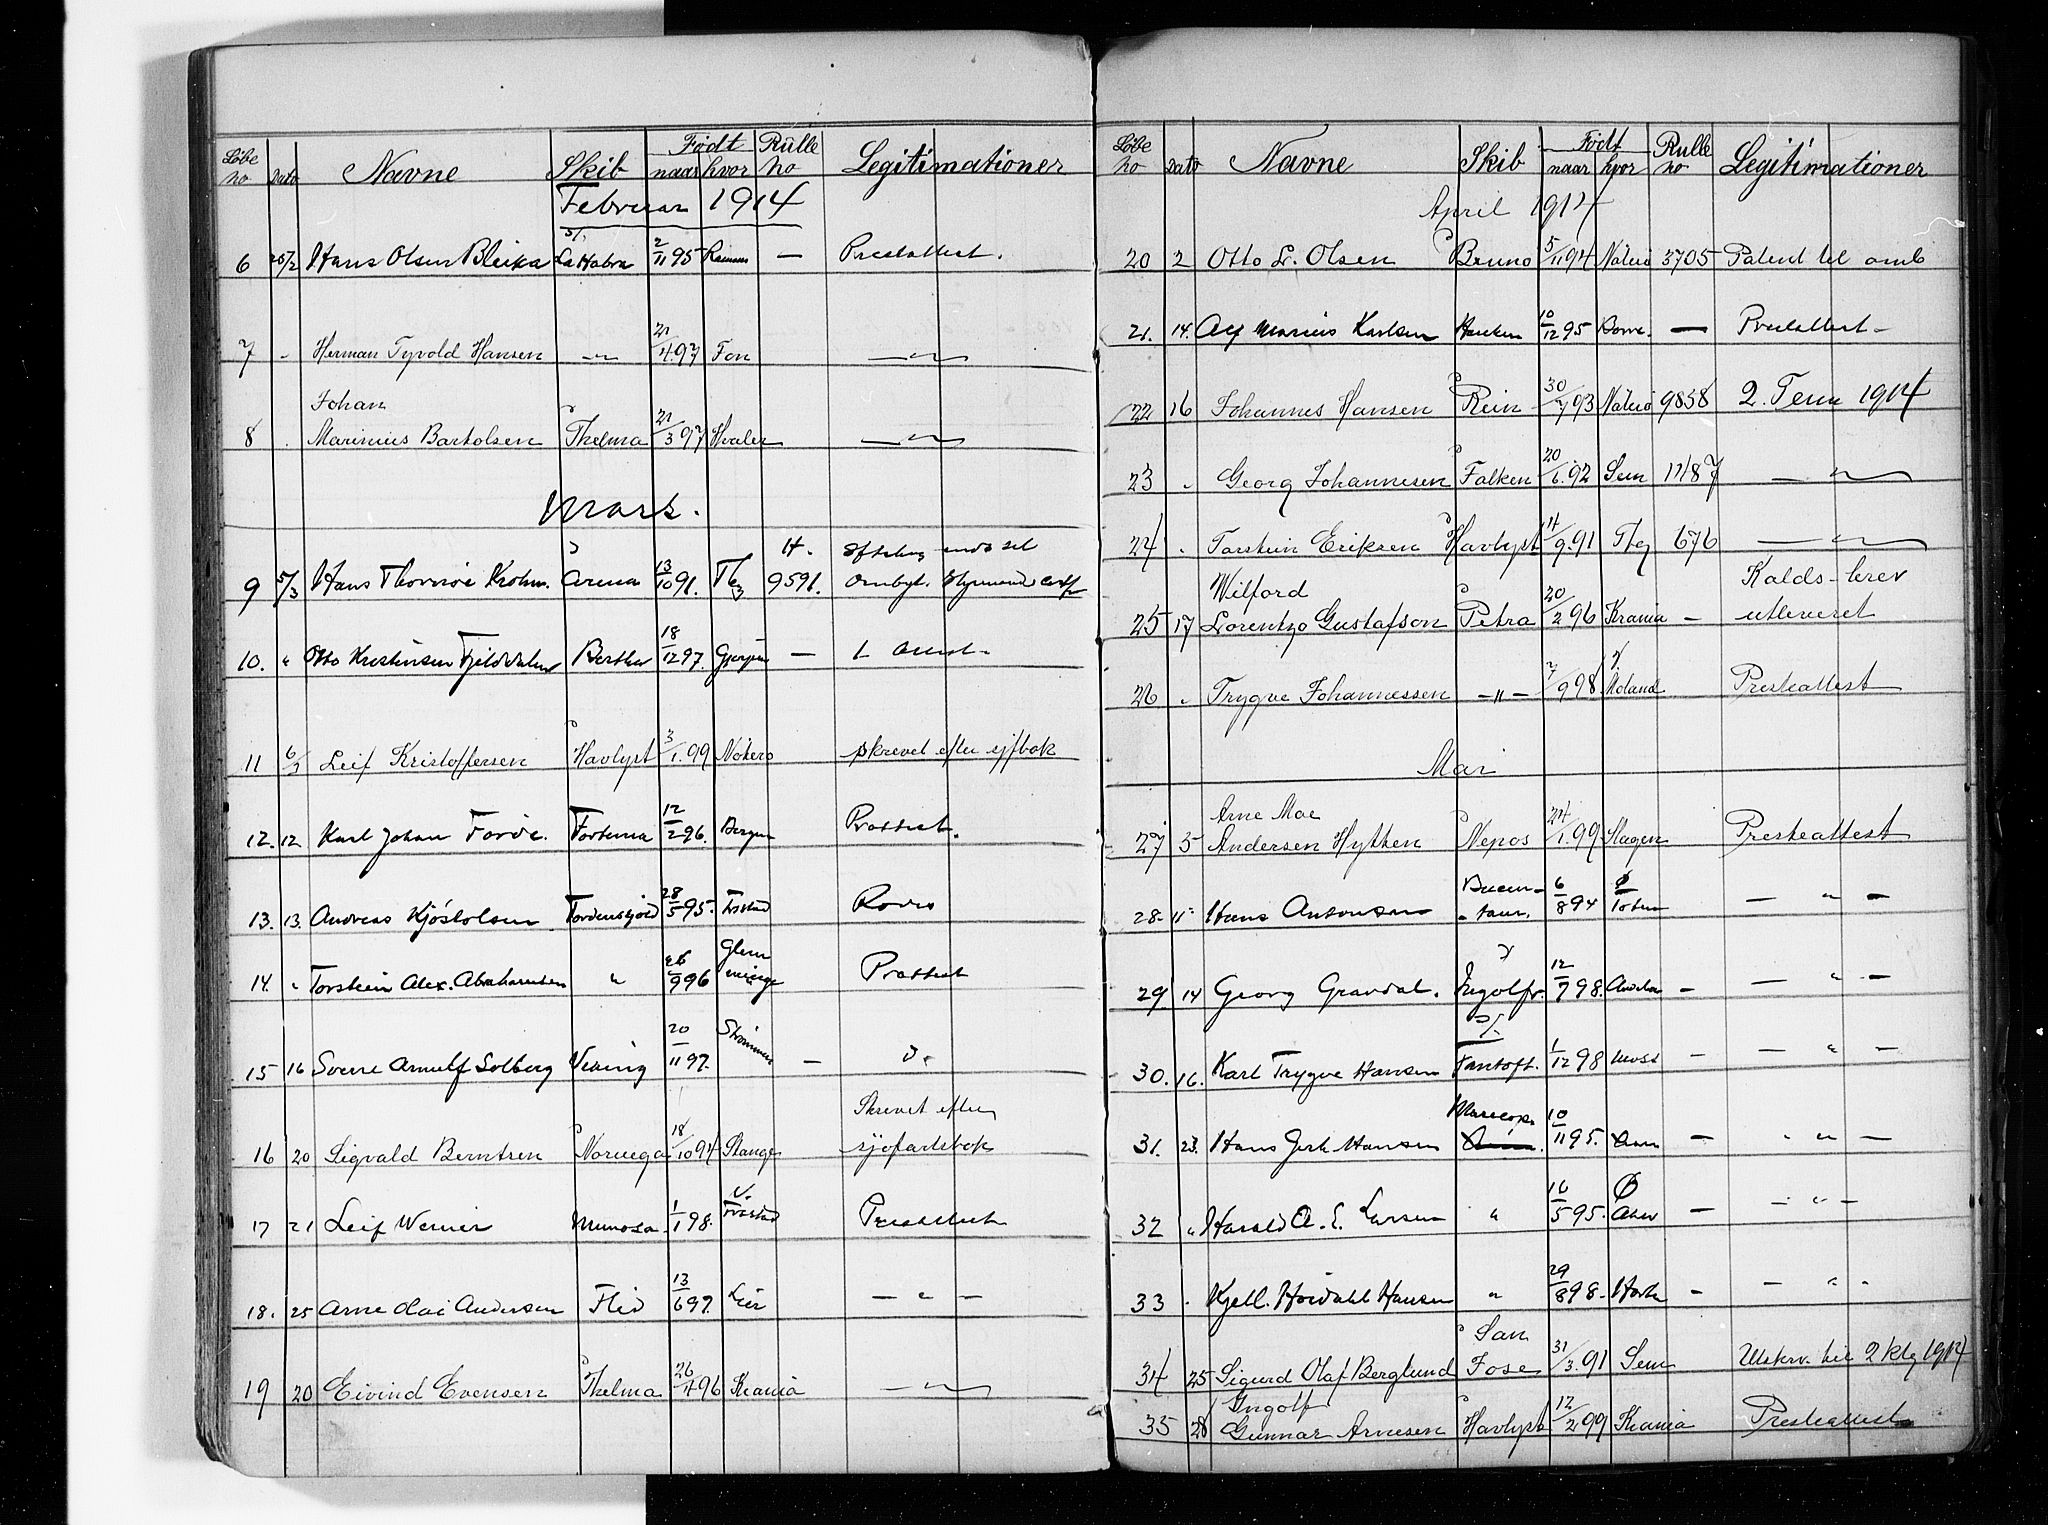 Løbe no Dato Navne Skib Født naar hvor Rulle no Legitimationer
Februar 1914
6 25/2 Hans Olsen Bleika La Habra 2/11 95 Ramnes — Prestattest.
7 " Herman Tyvold Hansen —"— 21/4 97 Fon —"—
8 " Johan
Marinius Bartolsen Thelma 21/3 97 Hvaler —"—
Mars.
9 5/3 Hans Thorvsøe Krohn. Arena 13/10 91. Tbg 9591.
10. " Otto Kristinsen Fjelddalen Bertha 18/12 97. Gjerpen — 1 Attest.
11 6/3 Leif Kristoffersen Havlyst 3/1 99 Nøterø skrevet efter sjfbok
12. 12 Karl Johan Førde. Fortuna 12/2 96. Bergen Prattest.
13. 13. Andreas Kjøstolsen Tordenskjold 28/5 95. Tistad
14. " Torstein Alex. Abrahamsen " 26/9 96 Glem
minge Prattest
15 16 Sverre Arnulf Solberg Viking 20/11 97. Strømmen — Do
16 20 Sigvald Berntsen Norvega 18/10 94 Stange Skrevet efter
sjøfartsbok
17 21 Leif Werner Mimosa 1/1 98. Prestattest
18. 25 Arne Olai Andersen Flid 13/6 97. Lier — " —
19 20 Eivind Evensen Thelma 26/4 96 Krania —"—
Løbe no Dato Navne Skib Født naar hvor Rulle no Legitimationer
April 1914
20 2 Otto L. Olsen Bruno 5/11 94 Nøterø 3705 Patent til omb
21. 14. Alf Marius Karlsen Hauken 10/12 95 Borre. — Prestattest
22 16 Johannes Hansen Rein 30/7 93 Nøterø 9858 2. Term 1914
23 " Georg Johannesen Falken 20/6 92 Sem 1187 —"—
24 " Torstein Eriksen Havlyst 14/9 91 Tbg 676 —"—
25 17 Wilford
Lorentzo Gustafson Petra 20/2 96 Krania — Kalds-brev
utleveret
26 " Trygve Johannessen —"— 7/9 98 Presteattest
Mai
27 5 Arne Moe
Andersen Hytten Nepos 24/1 99 Slagen Presteattest
28. 11 Hans Antonsen Bucen-
taur. 6/8 94 Ø
Toten — " —
29. 14 Georg Gravdal. Ingolfr. 12/7 98. — — " —
30. 16. Karl Trygve Hansen Fantoft. 1/12 98 Moss — — " —
31. 23. Hans Jerh. Hansen Maricopa 10/11 95. — " —
32 " Harald A. E. Larsen " 16/5 95. Ø
Aker — — " —
33 " Kjell. Høidahl Hansen " 29/8 98. — — " —
34 25 Sigurd Olaf Berglund San
Jose 31/3 91 Sem Utskrv. til 2 ktg 1914
35 28 Ingolf
Gunnar Arnesen Havlyst 12/2 99 Krania Presteattest